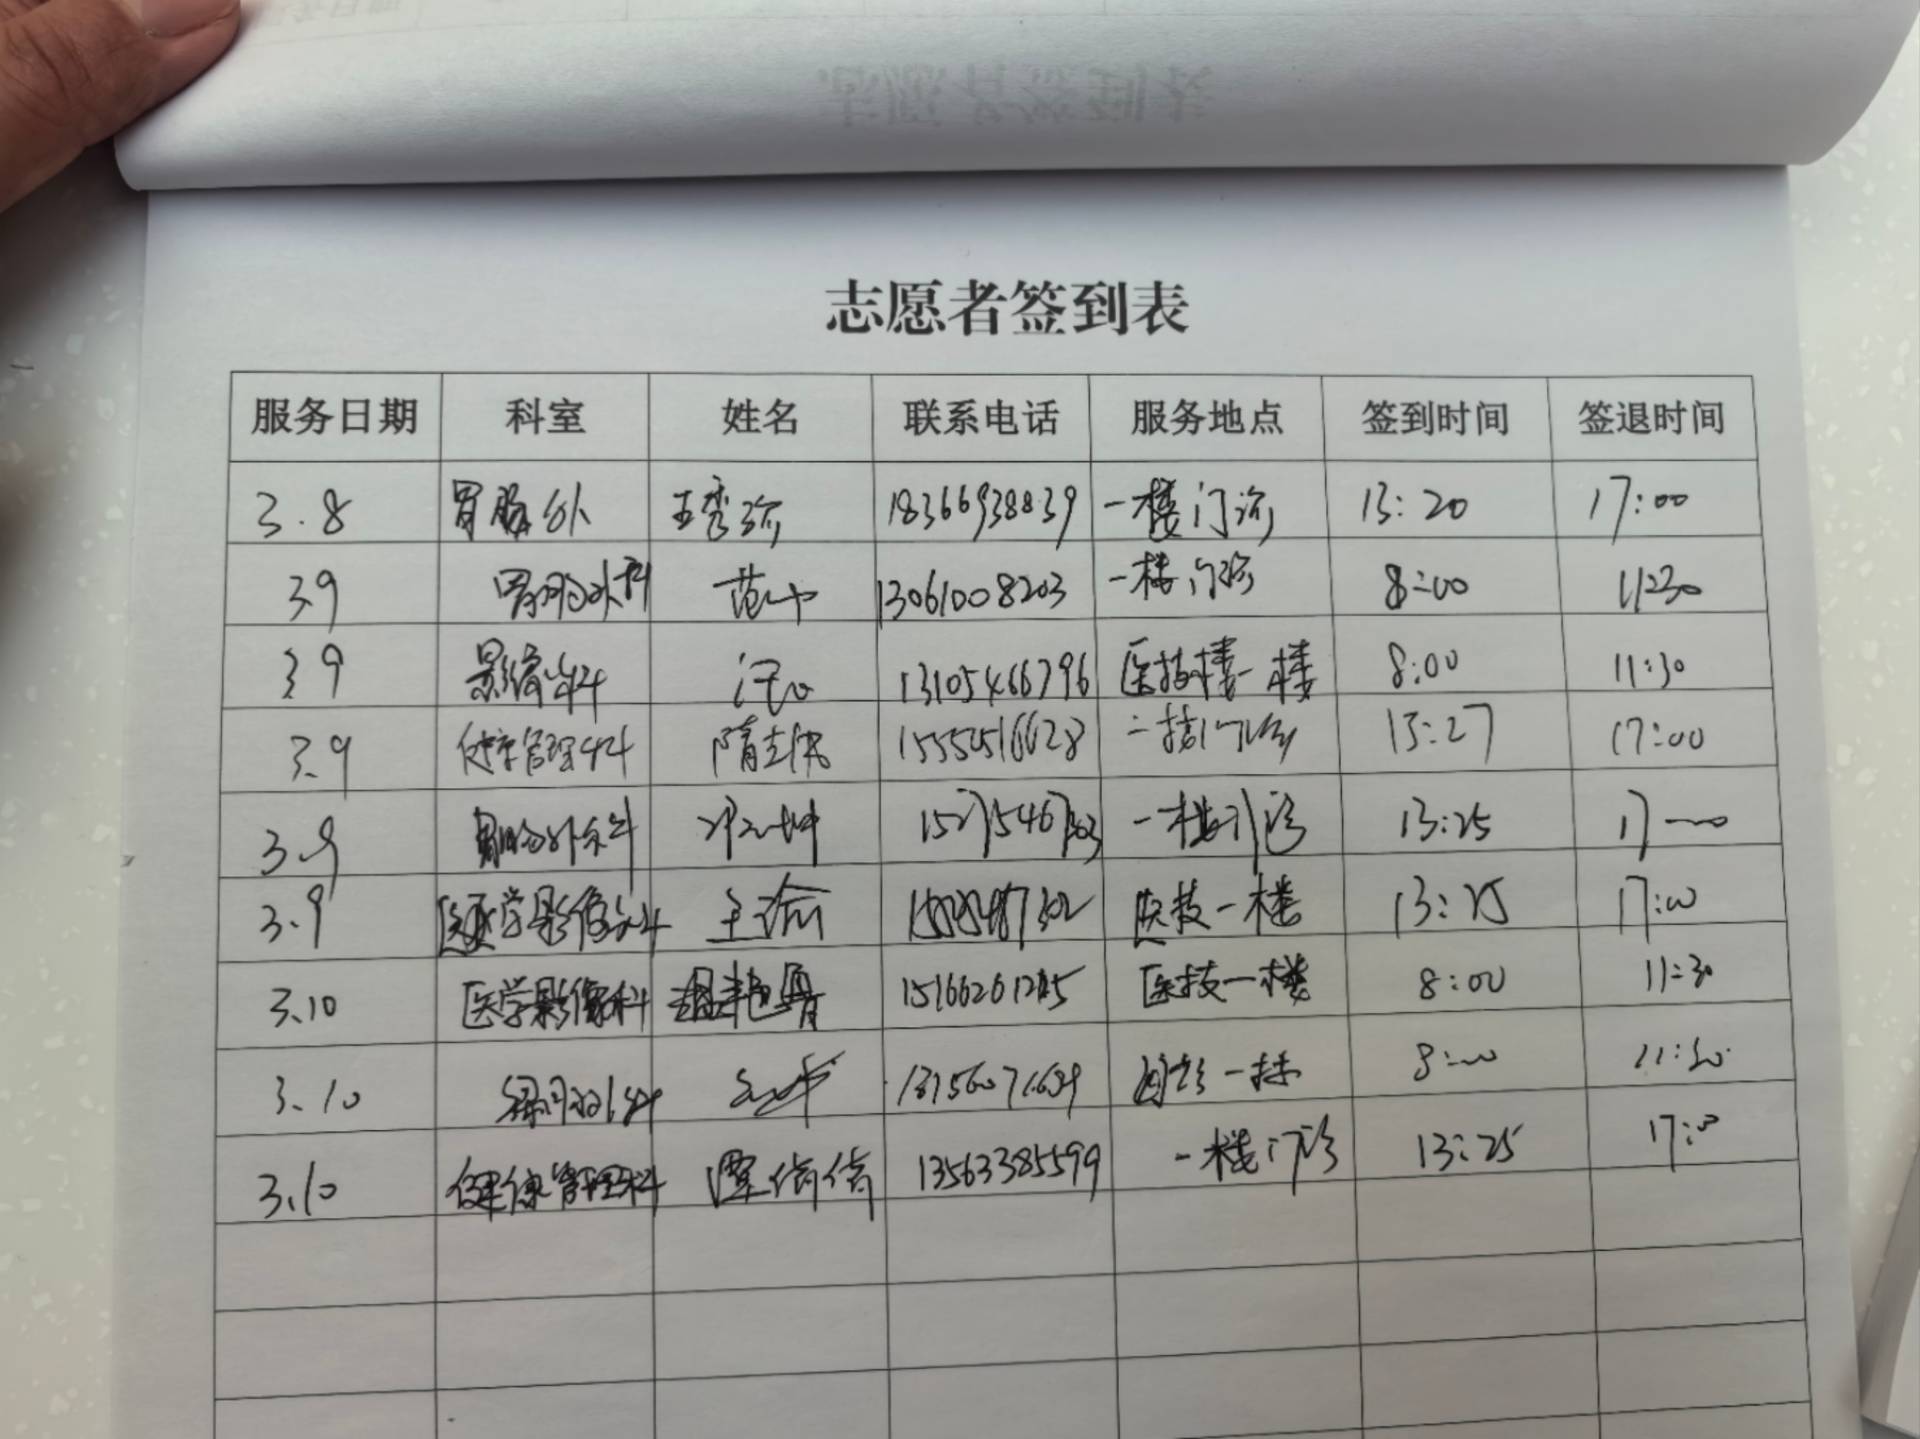 志愿者签到表
服务日期 科室 姓名 联系电话 服务地点 签到时间 签退时间
3.8 胃肠外 王秀 18366938839 一楼门诊 13:20 17:00
3.9 胃肠外科 范 13061008203 一楼门诊 8:00 11:30
3.9 影像科 13105466796 医技楼一楼 8:00 11:30
3.9 健康管理科 隋志伟 门诊 13:27 17:00
3.9 一楼门诊 13:25 17:00
3.9 医学影像科 王瑜 医技一楼 13:25 17:00
3.10 医学影像科 医技一楼 8:00 11:30
3.10 一楼 8:00 11:30
3.10 健康管理科 谭倩倩 13563385599 一楼门诊 13:25 17:00